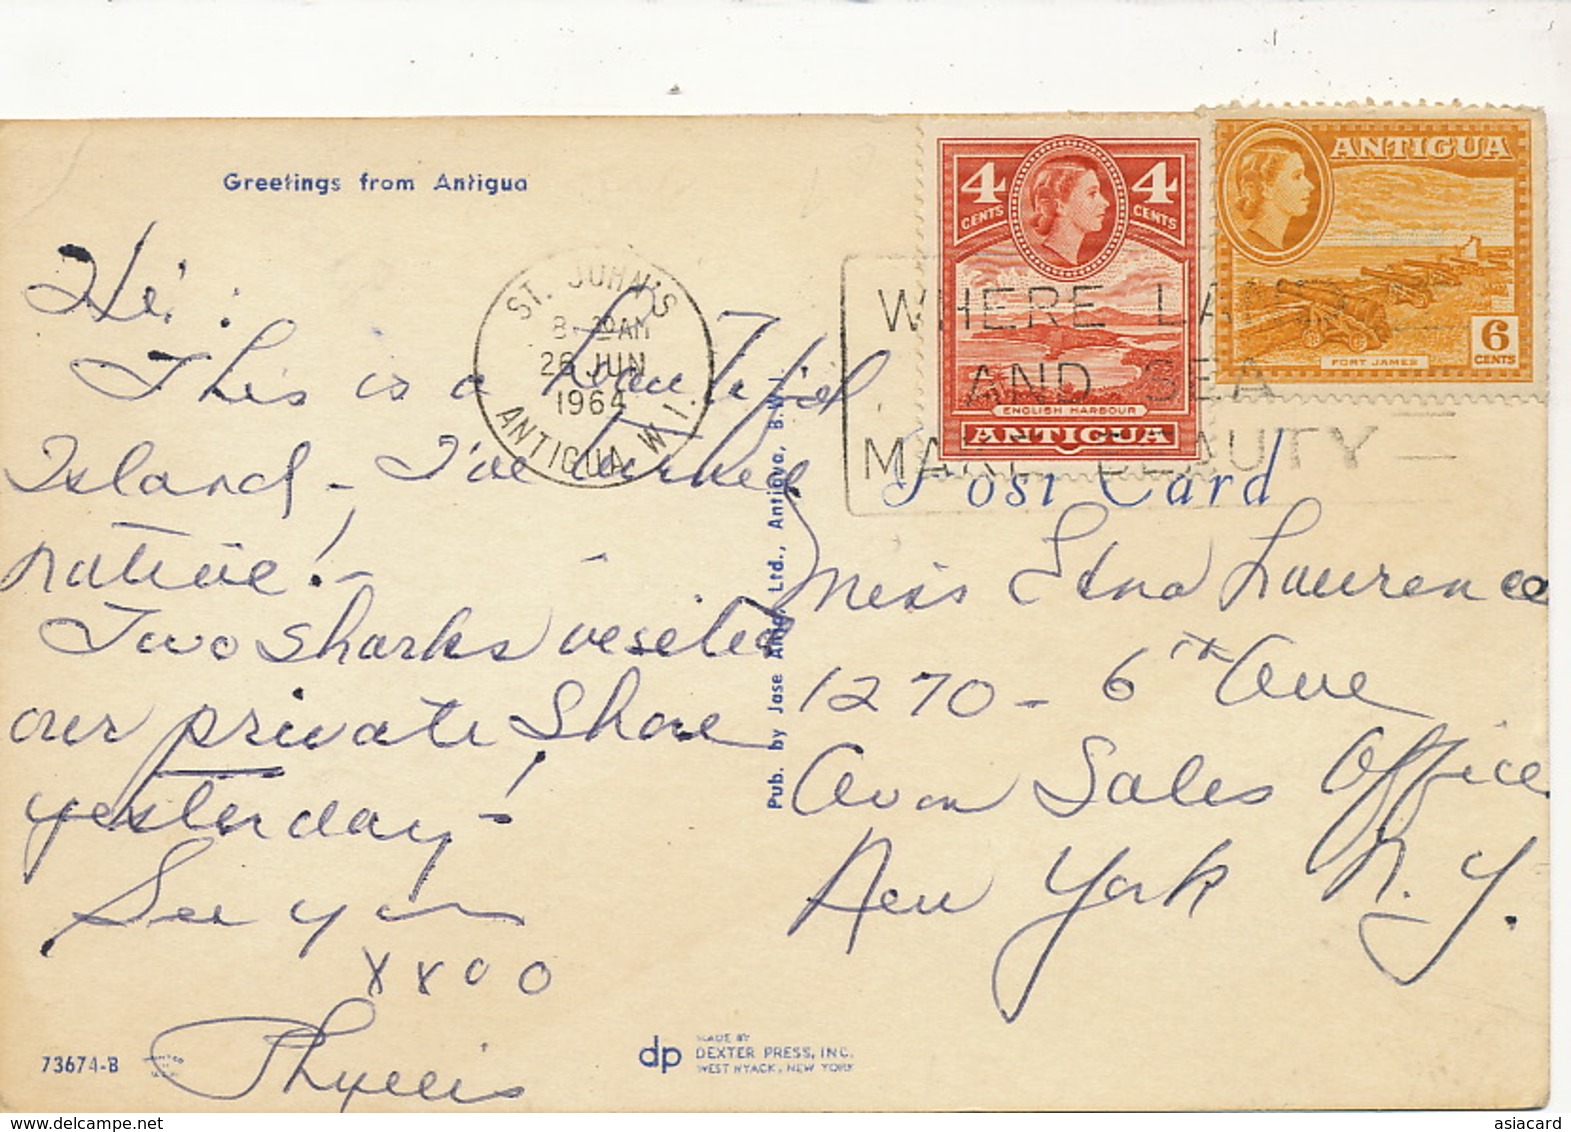 Greetings from Antigua
Hi :
This is a beautiful
Island - I've turned
native! -
Two sharks visited
our private shore
yesterday - !
See you
xxoo
Phyllis
73674-B
ST. JOHN'S
8 - 30 AM
26 JUN
1964
ANTIGUA W.I.
WHERE LAND
AND SEA
MAKE BEAUTY
4 CENTS
4 CENTS
ENGLISH HARBOUR
ANTIGUA
ANTIGUA
FORT JAMES
6 CENTS
Post Card
Miss Edna Lawrence
1270 - 6th Ave
Avon Sales Office
New York N.Y.
Pub. by Jase Ltd., Antigua, B.W.I.
dp
MADE BY
DEXTER PRESS, INC.
WEST NYACK, NEW YORK
delcampe.net
asiacard